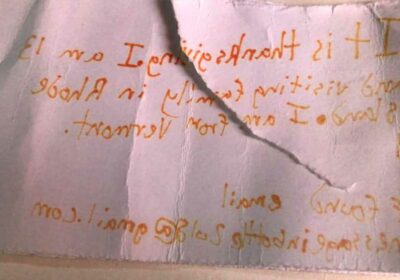 It is thanksgiving. I am 13
and visiting family in Rhode
Island. I am from Vermont.
found email
messageinbottle2018@gmail.com